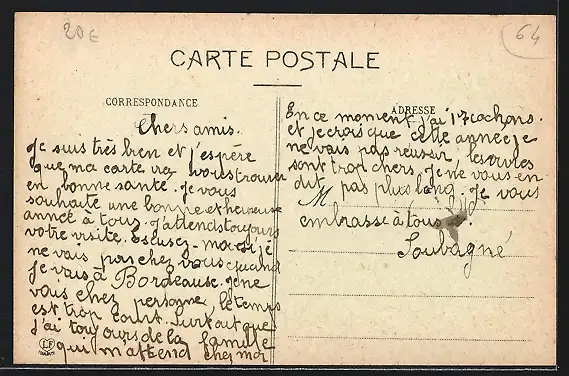 20€
64
CARTE POSTALE
CORRESPONDANCE
ADRESSE
Chers amis.
Je suis très bien et j'espère
que ma carte va vous trouver
en bonne santé. Je vous
souhaite une bonne et heureuse
année à tous. J'attends toujours
votre visite. Escusez-moi si je
ne vais pas chez vous quand
je vais à Bordeause. Je ne
vais chez personne, le temps
est trop court. Surtout que
j'ai toujours de la famille
qui m'attend chez moi
LF
En ce moment j'ai 17 cochons.
et je crois que cette année je
ne vais pas réussir, les
sont trop chers. Je ne vous en
dit pas plus long. Je vous
M
embrasse à tous
Soubagné